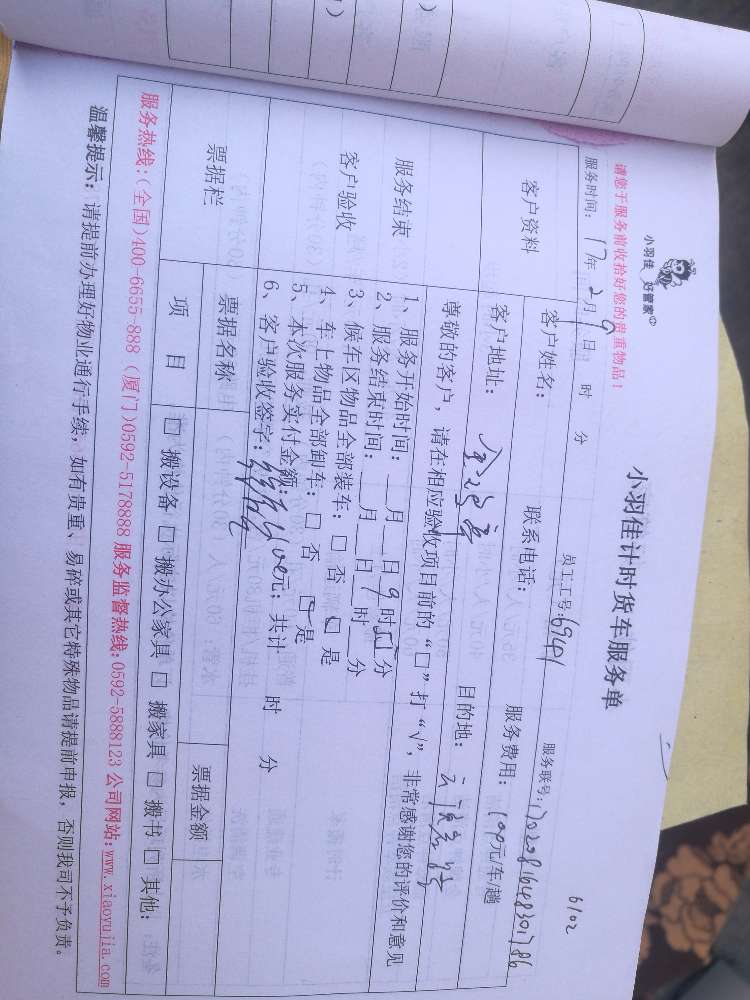 小羽佳 好管家
小羽佳计时货车服务单
6102
请您于服务前收拾好您的贵重物品！
员工工号:6941
服务联号:
服务时间：17年2月9日 时 分
客户资料
客户姓名：
联系电话：
服务费用：100元/车/趟
客户地址：
目的地：
尊敬的客户，请在相应验收项目前的“□”打“√”，非常感谢您的评价和意见
服务结束
客户验收
1、服务开始时间：__月__日9时__分
2、服务结束时间：__月__日__时__分
3、候车区物品全部装车：□ 否 □ 是
4、车上物品全部卸车：□ 否 □ 是
5、本次服务实付金额：100元；共计 时 分
6、客户验收签字：
票据栏
票据名称
票据金额
项 目
□ 搬设备 □ 搬办公家具 □ 搬家具 □ 搬书 □ 其他：
服务热线:(全国)400-6655-888 (厦门)0592-5178888 服务监督热线:0592-5888123 公司网站:www.xiaoyujia.com
温馨提示：请提前办理好物业通行手续，如有贵重、易碎或其它特殊物品请提前申报，否则我司不予负责。